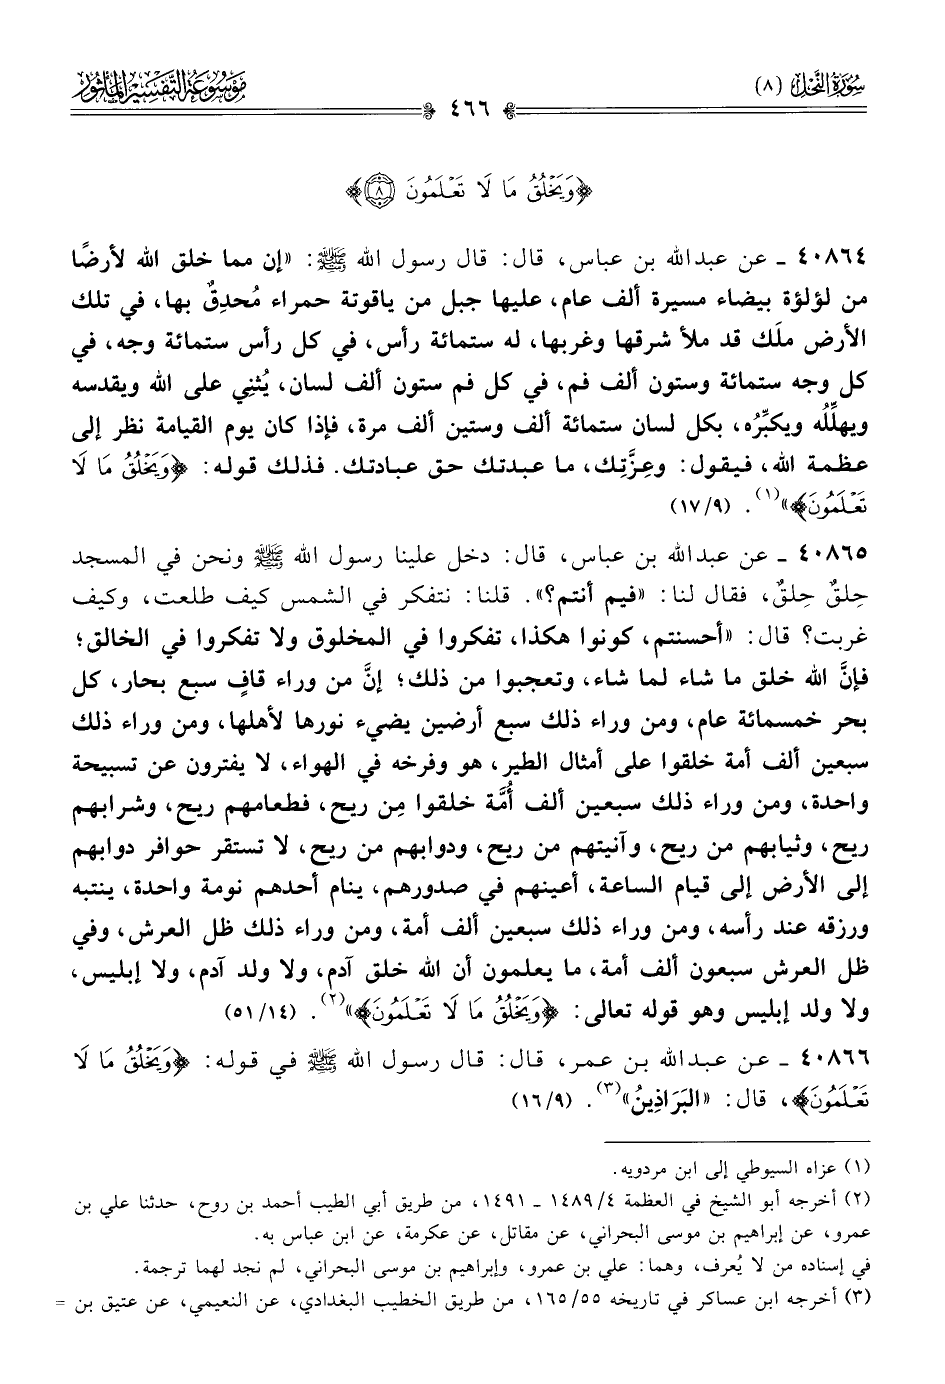 سُورَةُ النَّحْل (٨)
٤٦٦
مَوْسُوعَةُ التَّفْسِيرِ المَأْثُور
﴿وَيَخْلُقُ مَا لَا تَعْلَمُونَ ٨﴾
٤٠٨٦٤ ـ عن عبدالله بن عباس، قال: قال رسول الله ﷺ: «إن مما خلق الله لأرضًا
من لؤلؤة بيضاء مسيرة ألف عام، عليها جبل من ياقوتة حمراء مُحدِقٌ بها، في تلك
الأرض ملَك قد ملأ شرقها وغربها، له ستمائة رأس، في كل رأس ستمائة وجه، في
كل وجه ستمائة وستون ألف فم، في كل فم ستون ألف لسان، يُثنِي على الله ويقدسه
ويهلِّلُه ويكبِّرُه، بكل لسان ستمائة ألف وستين ألف مرة، فإذا كان يوم القيامة نظر إلى
عظمة الله، فيقول: وعِزَّتِك، ما عبدتك حق عبادتك. فذلك قوله: ﴿وَيَخْلُقُ مَا لَا
تَعْلَمُونَ﴾»(١). (١٧/٩)
٤٠٨٦٥ ـ عن عبدالله بن عباس، قال: دخل علينا رسول الله ﷺ ونحن في المسجد
حِلقٌ حِلقٌ، فقال لنا: «فيم أنتم؟». قلنا: نتفكر في الشمس كيف طلعت، وكيف
غربت؟ قال: «أحسنتم، كونوا هكذا، تفكروا في المخلوق ولا تفكروا في الخالق؛
فإنَّ الله خلق ما شاء لما شاء، وتعجبوا من ذلك؛ إنَّ من وراء قافٍ سبع بحار، كل
بحر خمسمائة عام، ومن وراء ذلك سبع أرضين يضيء نورها لأهلها، ومن وراء ذلك
سبعين ألف أمة خلقوا على أمثال الطير، هو وفرخه في الهواء، لا يفترون عن تسبيحة
واحدة، ومن وراء ذلك سبعين ألف أُمَّة خلقوا مِن ريح، فطعامهم ريح، وشرابهم
ريح، وثيابهم من ريح، وآنيتهم من ريح، ودوابهم من ريح، لا تستقر حوافر دوابهم
إلى الأرض إلى قيام الساعة، أعينهم في صدورهم، ينام أحدهم نومة واحدة، ينتبه
ورزقه عند رأسه، ومن وراء ذلك سبعين ألف أمة، ومن وراء ذلك ظل العرش، وفي
ظل العرش سبعون ألف أمة، ما يعلمون أن الله خلق آدم، ولا ولد آدم، ولا إبليس،
ولا ولد إبليس وهو قوله تعالى: ﴿وَيَخْلُقُ مَا لَا تَعْلَمُونَ﴾»(٢). (٥١/١٤)
٤٠٨٦٦ ـ عن عبدالله بن عمر، قال: قال رسول الله ﷺ في قوله: ﴿وَيَخْلُقُ مَا لَا
تَعْلَمُونَ﴾، قال: «البَرَاذِينُ»(٣). (١٦/٩)
(١) عزاه السيوطي إلى ابن مردويه.
(٢) أخرجه أبو الشيخ في العظمة ٤/ ١٤٨٩ ـ ١٤٩١، من طريق أبي الطيب أحمد بن روح، حدثنا علي بن
عمرو، عن إبراهيم بن موسى البحراني، عن مقاتل، عن عكرمة، عن ابن عباس به.
في إسناده من لا يُعرف، وهما: علي بن عمرو، وإبراهيم بن موسى البحراني، لم نجد لهما ترجمة.
(٣) أخرجه ابن عساكر في تاريخه ١٦٥/٥٥، من طريق الخطيب البغدادي، عن النعيمي، عن عتيق بن =